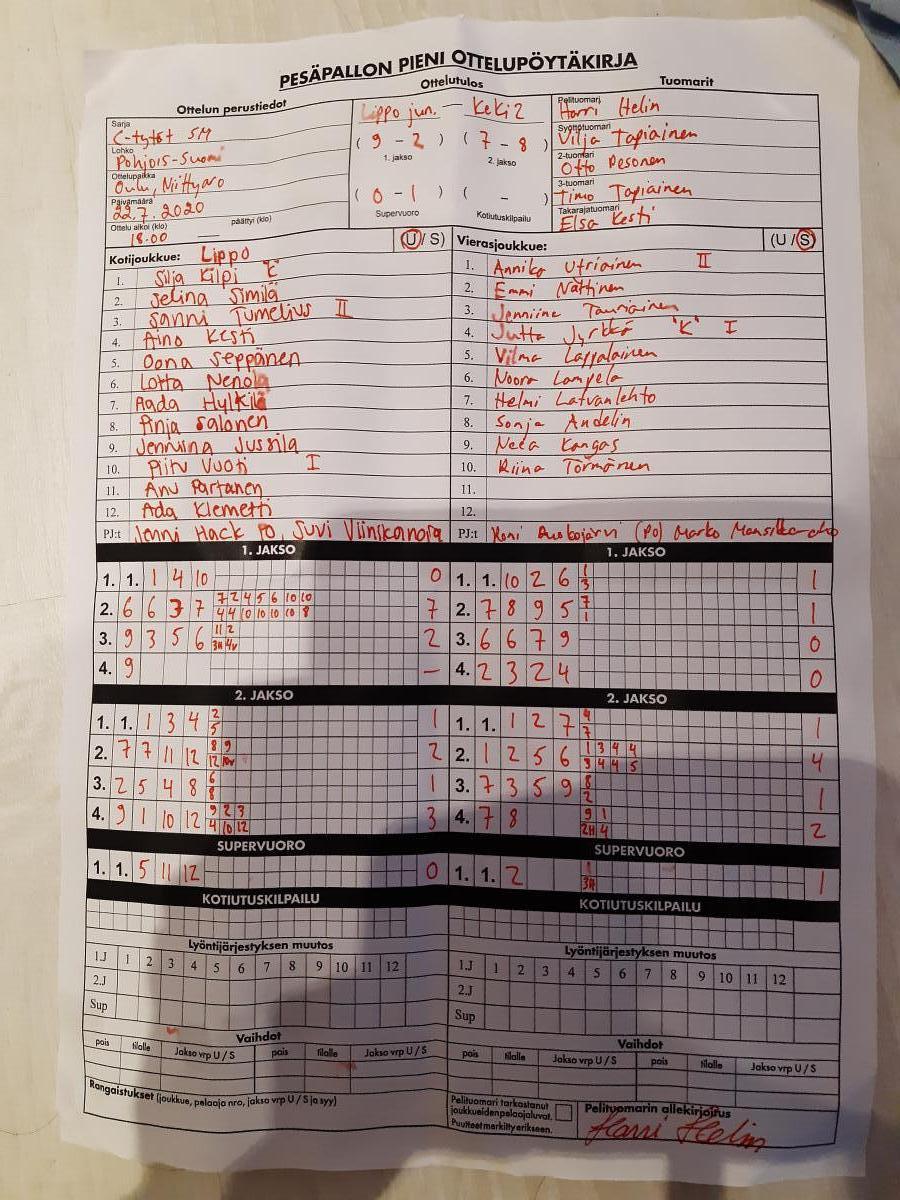 PESÄPALLON PIENI OTTELUPÖYTÄKIRJA
Ottelun perustiedot
Sarja
C-tytöt SM
Lohko
Pohjois-Suomi
Ottelupaikka
Oulu, Niittyaro
Päivämäärä
22.7.2020
Ottelu alkoi (klo) päättyi (klo)
18.00 —
Ottelutulos
Lippo jun. — KeKi 2
( 9 - 2 ) ( 7 - 8 )
1. jakso 2. jakso
( 0 - 1 ) ( - )
Supervuoro Kotiutuskilpailu
Tuomarit
Pelituomari
Harri Helin
Syöttötuomari
Vilja Tapiainen
2-tuomari
Otto Pesonen
3-tuomari
Timo Tapiainen
Takarajatuomari
Elsa Kesti
Kotijoukkue: Lippo (U / S)
1. Silja Kilpi 'C'
2. Selina Similä
3. Sanni Tumelius II
4. Aino Kesti
5. Oona Seppänen
6. Lotta Nenola
7. Aada Hylkilä
8. Pinja Salonen
9. Jenniina Jussila
10. Piitu Vuoti I
11. Anu Partanen
12. Ada Klemetti
PJ:t Jenni Hack PO, Suvi Viinikanoja
Vierasjoukkue: (U / S)
1. Annika Utriainen II
2. Emmi Nättinen
3. Jenniina Tauriainen
4. Jutta Jyrkkä 'K' I
5. Vilma Lappalainen
6. Noora Lampela
7. Helmi Latvanlehto
8. Sonja Andelin
9. Neea Kangas
10. Riina Törmänen
11.
12.
PJ:t (PO) Marko
1. JAKSO
1. 1. 1 4 10 0
2. 6 6 3 7 7 2 4 5 6 10 10 7
4 4 10 10 10 10 8
3. 9 3 5 6 11 2 2
3H 4v
4. 9 —
1. JAKSO
1. 1. 10 2 6 1 1
3
2. 7 8 9 5 7 1
1
3. 6 6 7 9 0
4. 2 3 2 4 0
2. JAKSO
1. 1. 1 3 4 2 1
5
2. 7 7 11 12 8 9 2
12 10v
3. 2 5 4 8 6 1
8
4. 9 1 10 12 9 2 3 3
4 10 12
2. JAKSO
1. 1. 1 2 7 4 1
7
2. 1 2 5 6 1 3 4 4 4
3 4 4 5
3. 7 3 5 9 8 1
2
4. 7 8 9 1 2
2H 4
SUPERVUORO
1. 1. 5 11 12 0
SUPERVUORO
1. 1. 2 1 1
3H
KOTIUTUSKILPAILU
KOTIUTUSKILPAILU
Lyöntijärjestyksen muutos
1.J 1 2 3 4 5 6 7 8 9 10 11 12
2.J
Sup
Lyöntijärjestyksen muutos
1.J 1 2 3 4 5 6 7 8 9 10 11 12
2.J
Sup
Vaihdot
pois tilalle Jakso vrp U / S pois tilalle Jakso vrp U / S
Vaihdot
pois tilalle Jakso vrp U / S pois tilalle Jakso vrp U / S
Rangaistukset (joukkue, pelaaja nro, jakso vrp U / S ja syy)
Pelituomari tarkastanut
joukkueiden pelaajaluvat.
Puutteet merkitty erikseen.
Pelituomarin allekirjoitus
Harri Helin